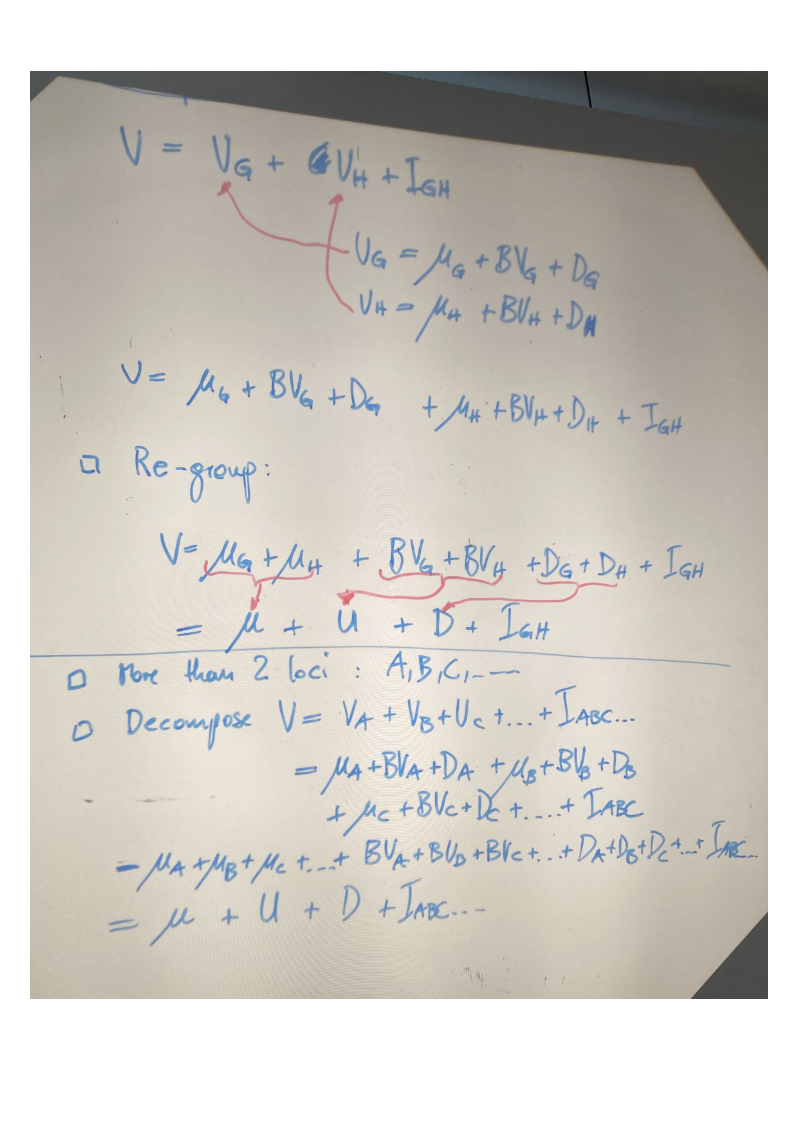 V = V_G + V_H + I_GH
V_G = μ_G + BV_G + D_G
V_H = μ_H + BV_H + D_H
V = μ_G + BV_G + D_G + μ_H + BV_H + D_H + I_GH
□ Re-group:
V = μ_G + μ_H + BV_G + BV_H + D_G + D_H + I_GH
= μ + U + D + I_GH
□ More than 2 loci : A, B, C, ....
□ Decompose V = V_A + V_B + V_C + ... + I_ABC...
= μ_A + BV_A + D_A + μ_B + BV_B + D_B
+ μ_C + BV_C + D_C + .... + I_ABC
= μ_A + μ_B + μ_C + .... + BV_A + BV_B + BV_C + ... + D_A + D_B + D_C + ... + I_ABC...
= μ + U + D + I_ABC....